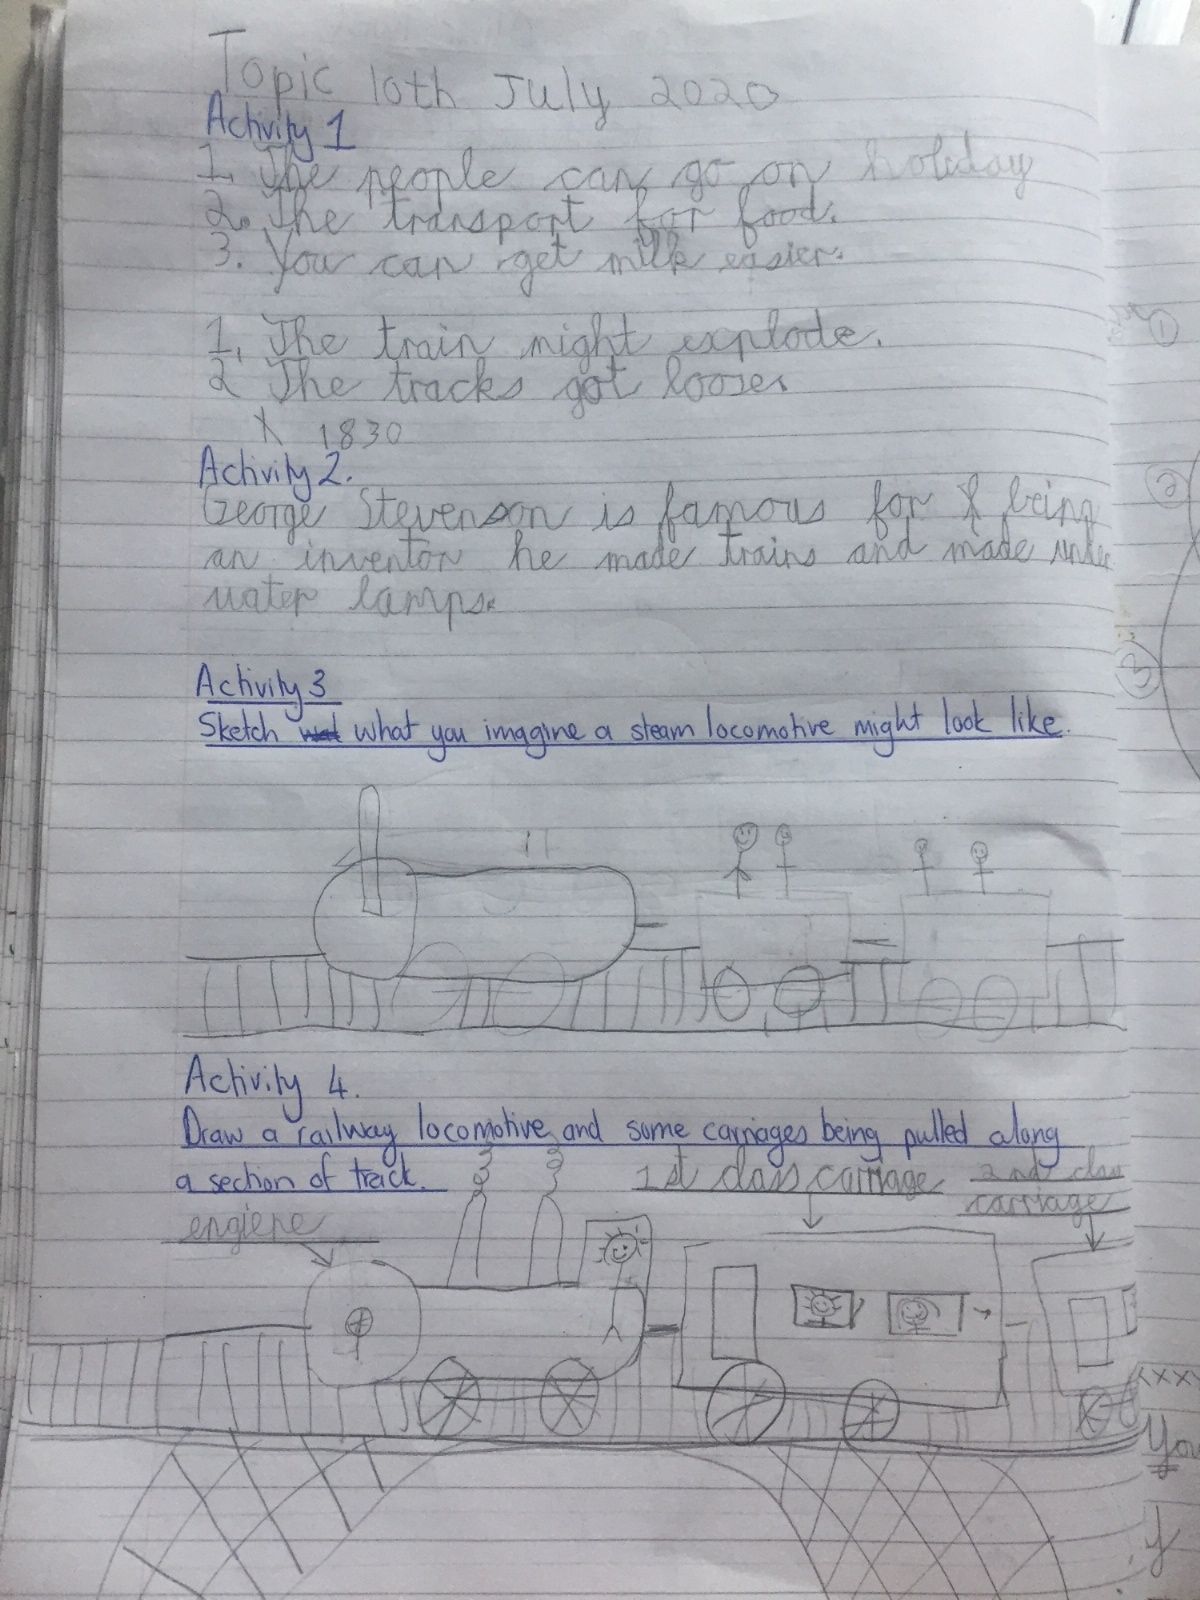 Topic 10th July 2020
Activity 1
1. The people can go on holiday
2. The transport for food.
3. You can get milk easier.
1. The train might explode.
2 The tracks got loose.
1830
Activity 2.
George Stevenson is famous for being
an inventor he made trains and made under
water lamps.
Activity 3
Sketch what you imagine a steam locomotive might look like.
Activity 4.
Draw a railway locomotive and some carriages being pulled along
a section of track.
1st class carriage
2nd class
carriage
engiene
①
②
③
xxx
You